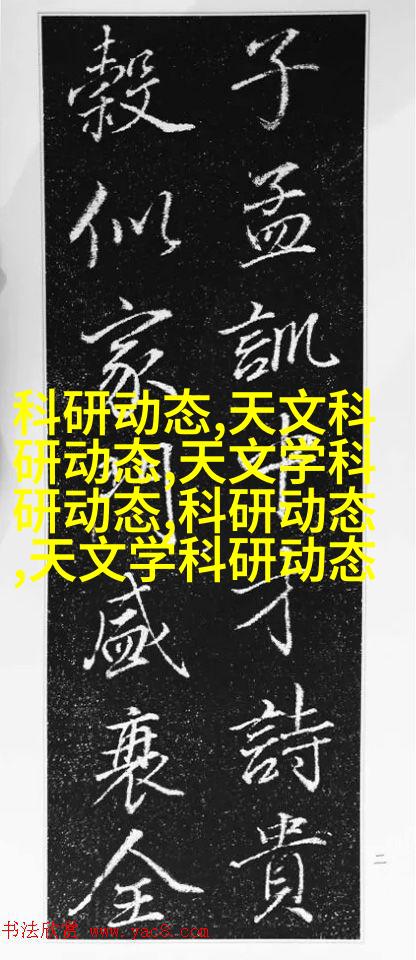 子孟訓中才詩貴
穀似家盛衰全
科研动态,天文科
研动态,天文学科
研动态,科研动态
,天文学科研动态
二
书法欣赏 www.yac8.com